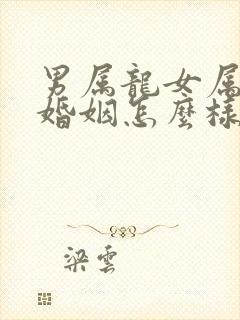 男属龍女属
婚姻怎麼樣
梁雲